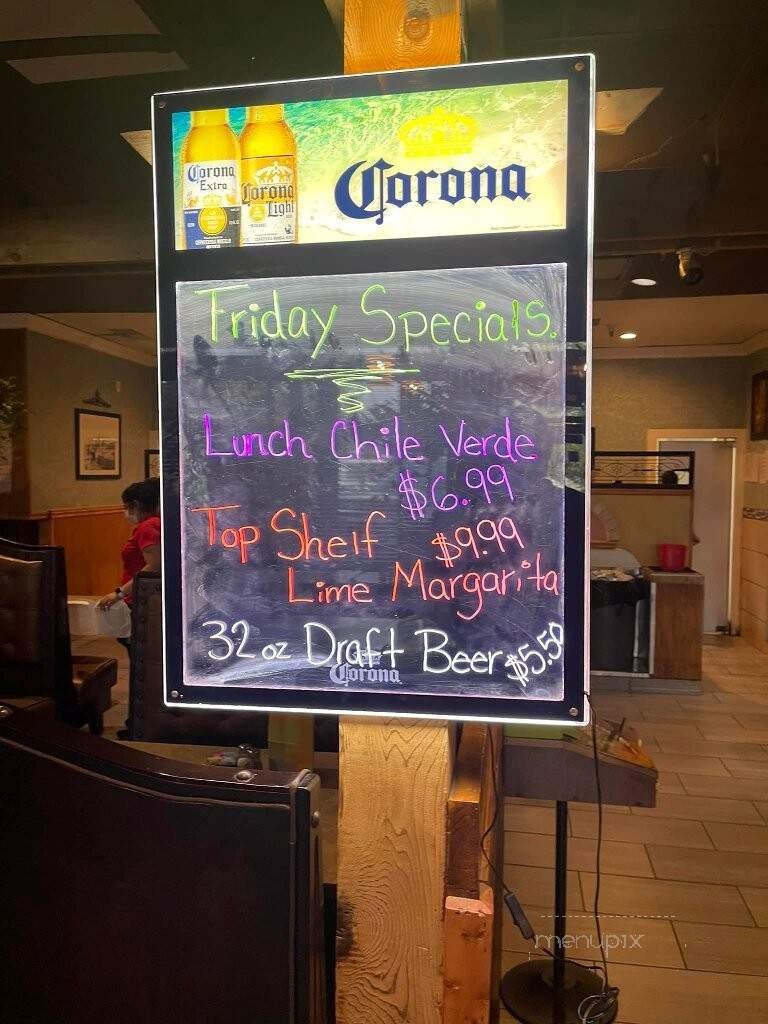 Corona
Extra
Corona
Light
Corona
Friday Specials.
Lunch Chile Verde
$6.99
Top Shelf $9.99
Lime Margarita
32 oz Draft Beer $5.50
Corona
menupix